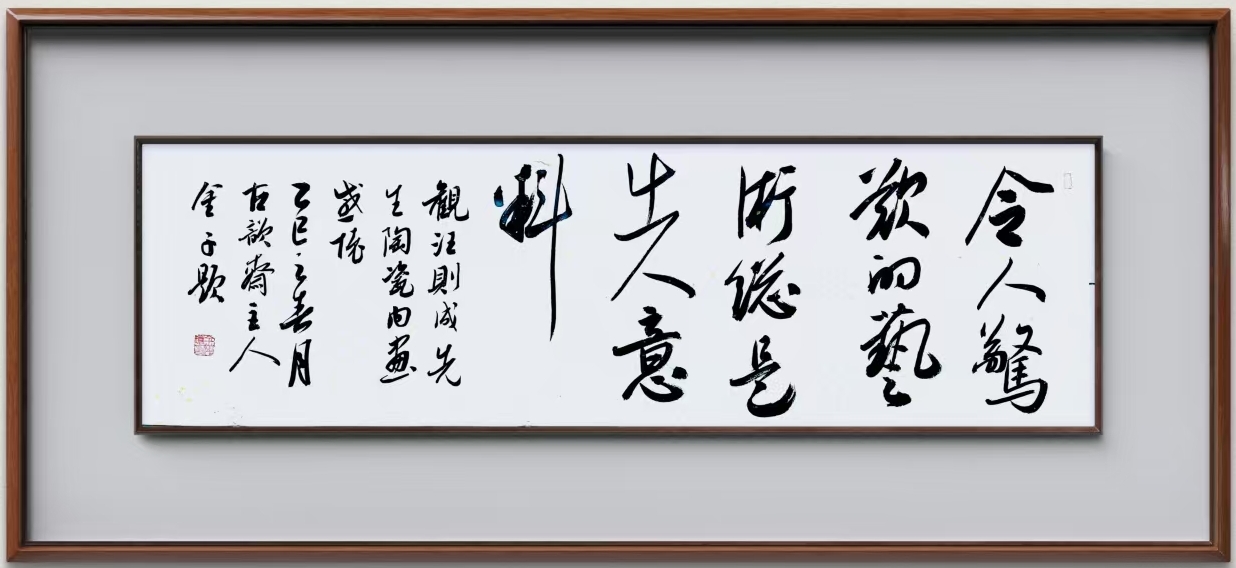 令人驚
歎的藝
術總是
出人意
料
觀汪則成先
生陶瓷内畫
感
乙巳之春月
古歙齋主人
金子題